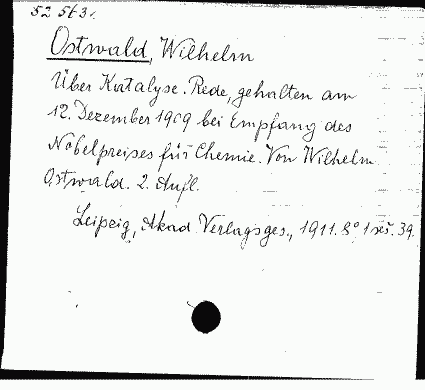 52 563.
Ostwald, Wilhelm
Über Katalyse. Rede, gehalten am
12. Dezember 1909 bei Empfang des
Nobelpreises für Chemie. Von Wilhelm
Ostwald. 2. Aufl.
Leipzig, Akad. Verlagsges., 1911. 8° 39.